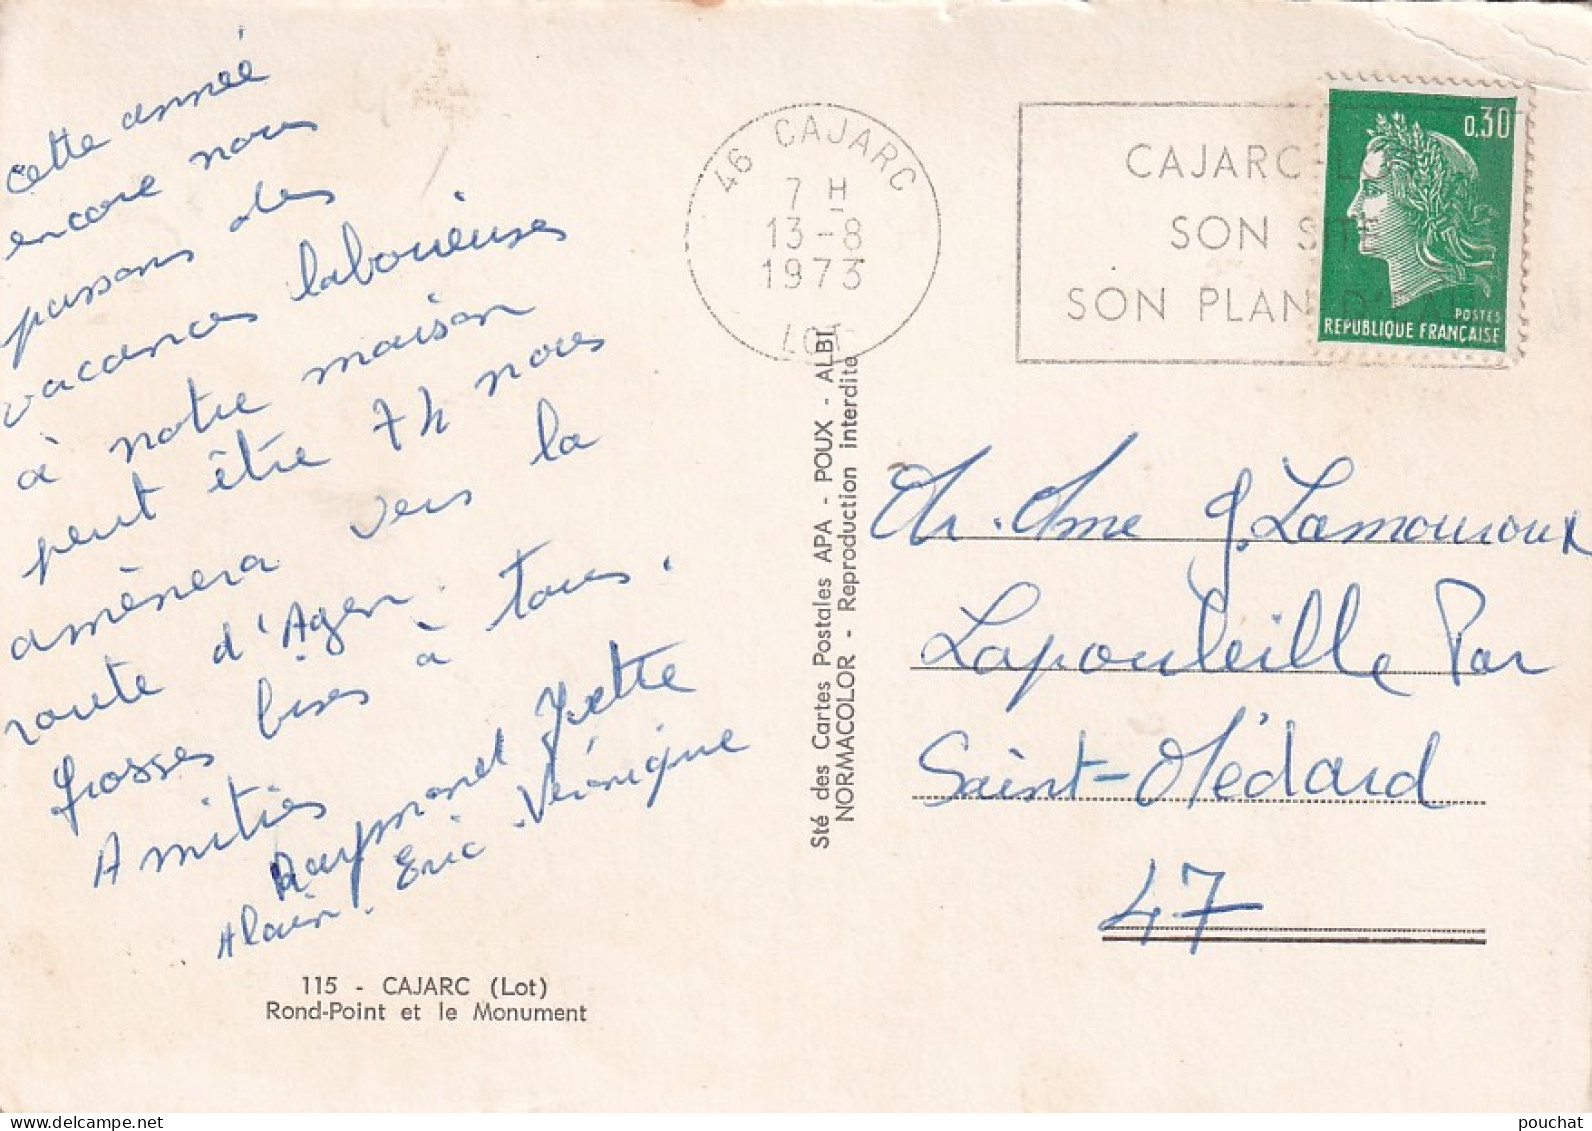 Cette année
encore nous
passons des
vacances laborieuses
à notre maison
peut être 7h nous
amènera vers la
route d'Agen.
Grosses bises à tous.
Amitiés
Raymond Yvette
Alain. Eric. Véronique
115 - CAJARC (Lot)
Rond-Point et le Monument
46 CAJARC
7 H
13-8
1973
LOT
CAJARC-LO
SON SI
SON PLAN D'
0,30
POSTES
REPUBLIQUE FRANÇAISE
Sté des Cartes Postales APA - POUX - ALBI
NORMACOLOR - Reproduction interdite
Mr. Mme J. Lamouroux
Lapouleille Par
Saint-Médard
47
pouchat